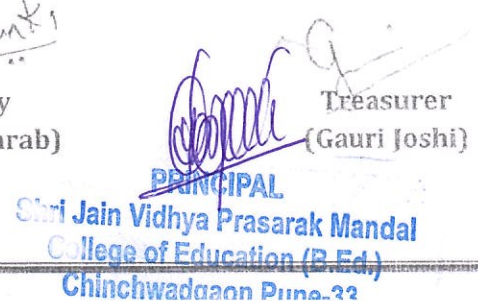 Treasurer
(Gauri Joshi)
PRINCIPAL
Shri Jain Vidhya Prasarak Mandal
College of Education (B.Ed.)
Chinchwadgaon Pune-33